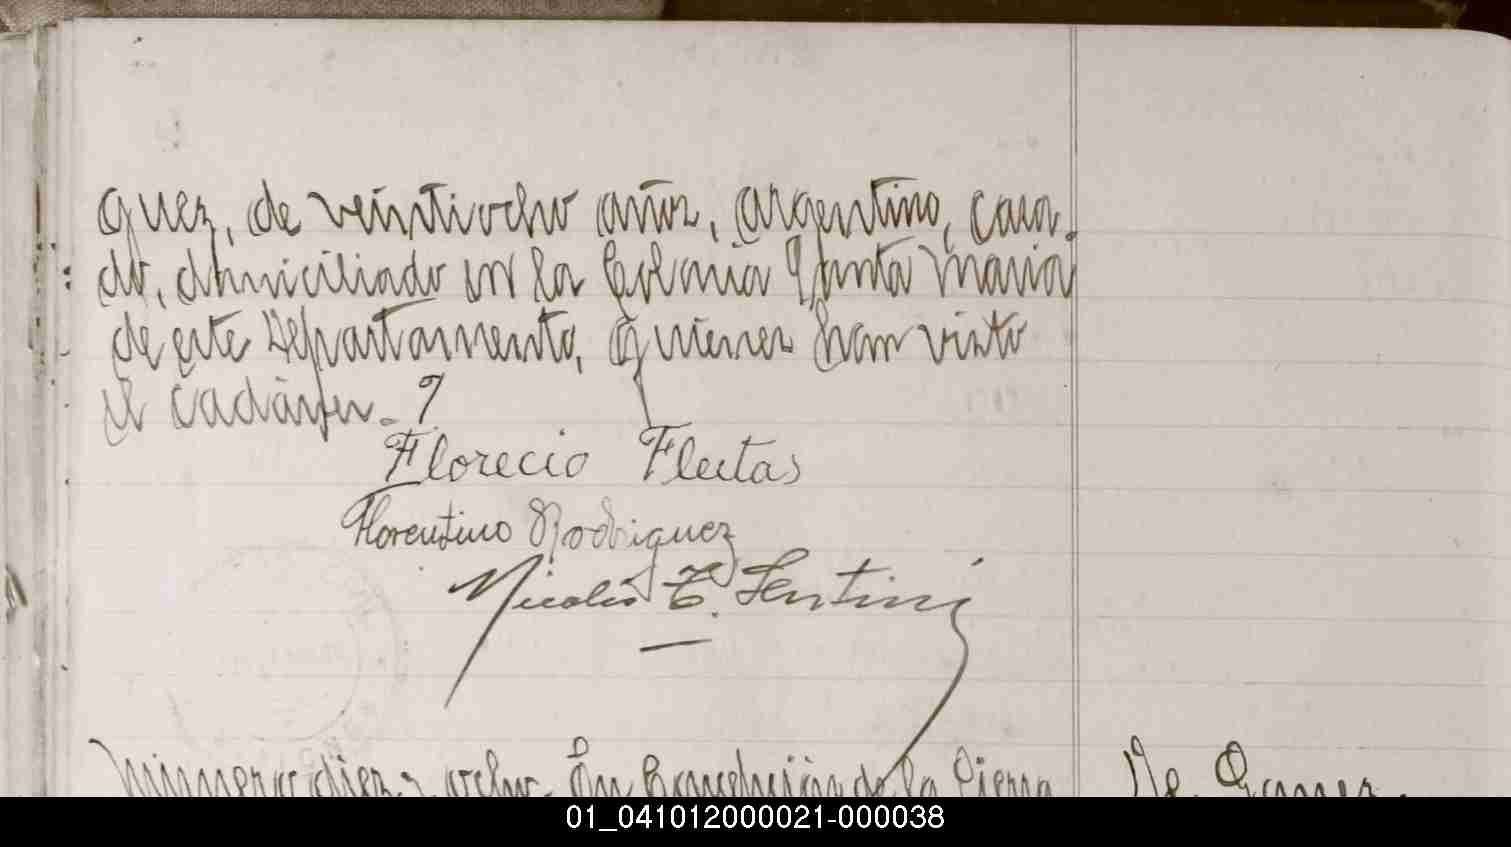 guez, de veintiocho años, argentino, casa-
do, domiciliado en la Colonia Santa Maria
de este Departamento, quienes han visto
el cadáver.-
Florecio Fleitas
Florentino Rodriguez
Nicolás E. Sentini
Número diez y ocho. En Concepción de la Sierra
01_041012000021-000038